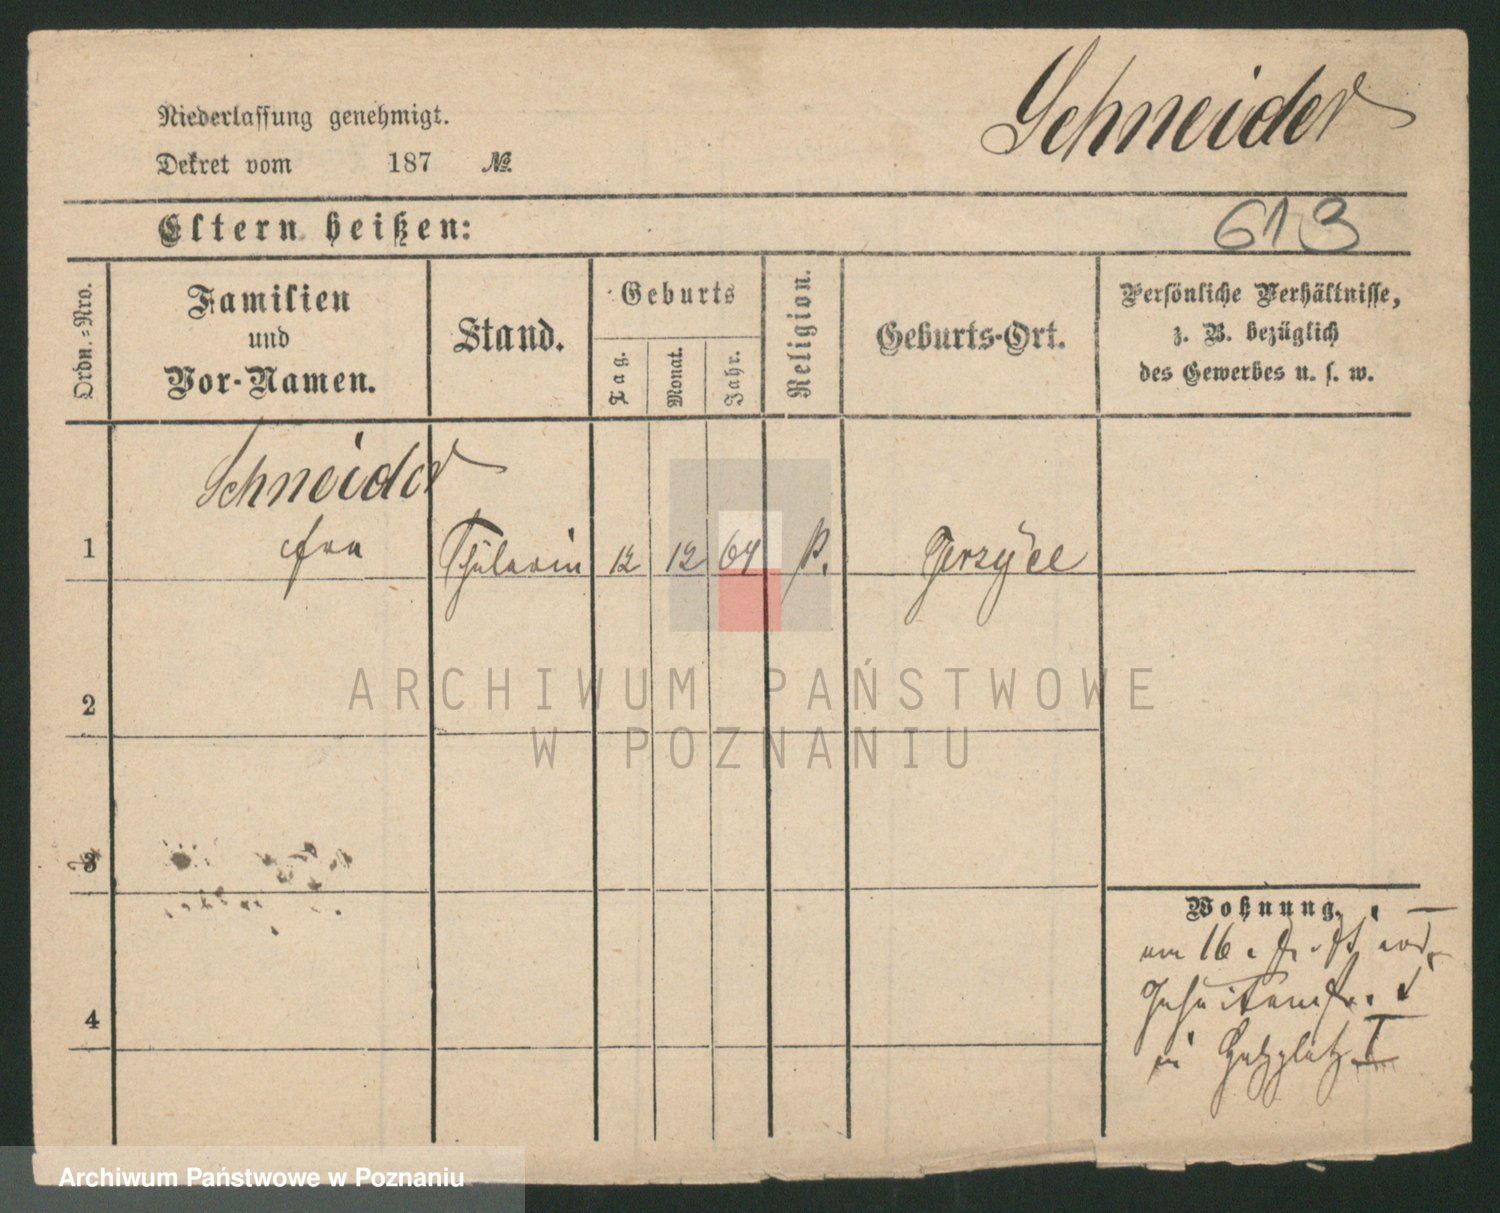 Schneider
Niederlassung genehmigt.
Dekret vom 187 №
Eltern heißen:
613
Ordn.=Nro.
Familien
und
Vor-Namen.
Stand.
Geburts
Tag.
Monat.
Jahr.
Religion.
Geburts-Ort.
Persönliche Verhältnisse,
z. B. bezüglich
des Gewerbes u. s. w.
Schneider
1 Schülerin 12 12 64 P. Jerzyce
2
ARCHIWUM PAŃSTWOWE
W POZNANIU
3
Wohnung.
16
Jesuitenstr.
4
in
Archiwum Państwowe w Poznaniu